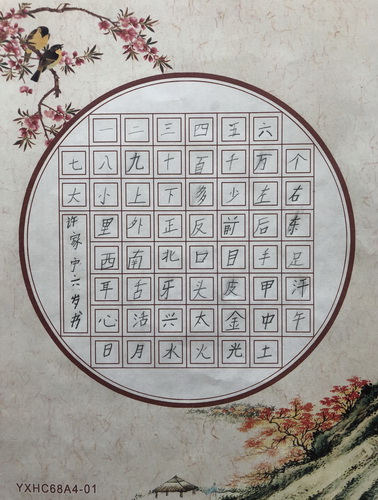 一二三四五六
七八九十百千万个
大小上下多少左右
里外正反前后东
西南北口目手足
耳舌牙头皮甲汗
心活兴太金中午
日月水火光土
许家宁六岁书
YXHC68A4-01